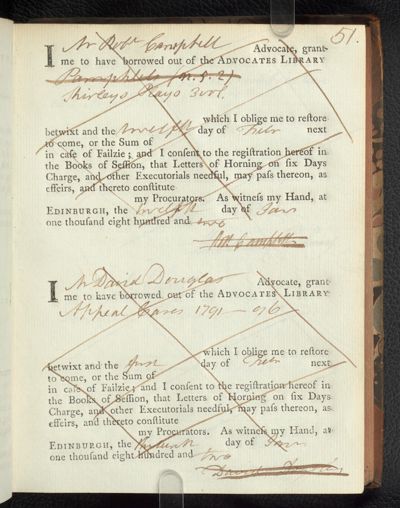 51.
I Mr Robt. Campbell Advocate, grant-
me to have borrowed out of the ADVOCATES LIBRARY
Pamphlets (n.s. 2)
Shirleys Plays 3 vol.
which I oblige me to restore
betwixt and the twelfth day of Febr next
to come, or the Sum of
in case of Failzie; and I consent to the registration hereof in
the Books of Session, that Letters of Horning on six Days
Charge, and other Executorials needful, may pass thereon, as
effeirs, and thereto constitute
my Procurators. As witness my Hand, at
EDINBURGH, the twelfth day of Jany
one thousand eight hundred and two
Robt Campbell
I Mr David Douglas Advocate, grant
me to have borrowed out of the ADVOCATES LIBRARY
Appeal Cases 1791 — 96
which I oblige me to restore
betwixt and the first day of Febr next
to come, or the Sum of
in case of Failzie; and I consent to the registration hereof in
the Books of Session, that Letters of Horning on six Days
Charge, and other Executorials needful, may pass thereon, as
effeirs, and thereto constitute
my Procurators. As witness my Hand, at
EDINBURGH, the day of Jany
one thousand eight hundred and two
David Douglas